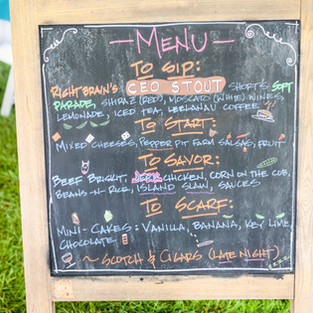 MENU
TO SIP:
RIGHT BRAIN'S CEO STOUT SHORT'S SOFT
PARADE, SHIRAZ (RED), MOSCATO (WHITE) WINES,
LEMONADE, ICED TEA, LEELANAU COFFEE
TO START:
MIXED CHEESES, PEPPER PIT FARM SALSAS, FRUIT
TO SAVOR:
BEEF BRIGHT, JERK CHICKEN, CORN ON THE COB,
BEANS-N-RICE, ISLAND SLAW, SAUCES
TO SCARF:
MINI-CAKES: VANILLA, BANANA, KEY LIME,
CHOCOLATE
~ SCOTCH & CIGARS (LATE NIGHT)